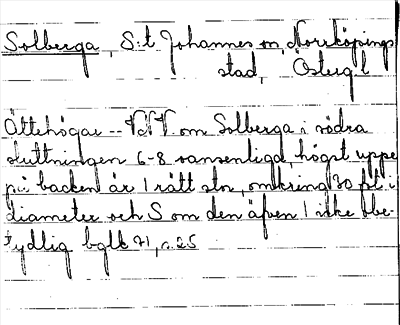 Solberga, S:t Johannes sn, Norrköpings
stad, Östergl
Ättehögar -- NNV om Solberga i södra
sluttningen 6-8 vansenligd, högst uppe
på backen är 1 rätt stor, omkring 30 fot i
diameter och S om den äfven 1 icke obe-
tydlig bglt 71, s. 25